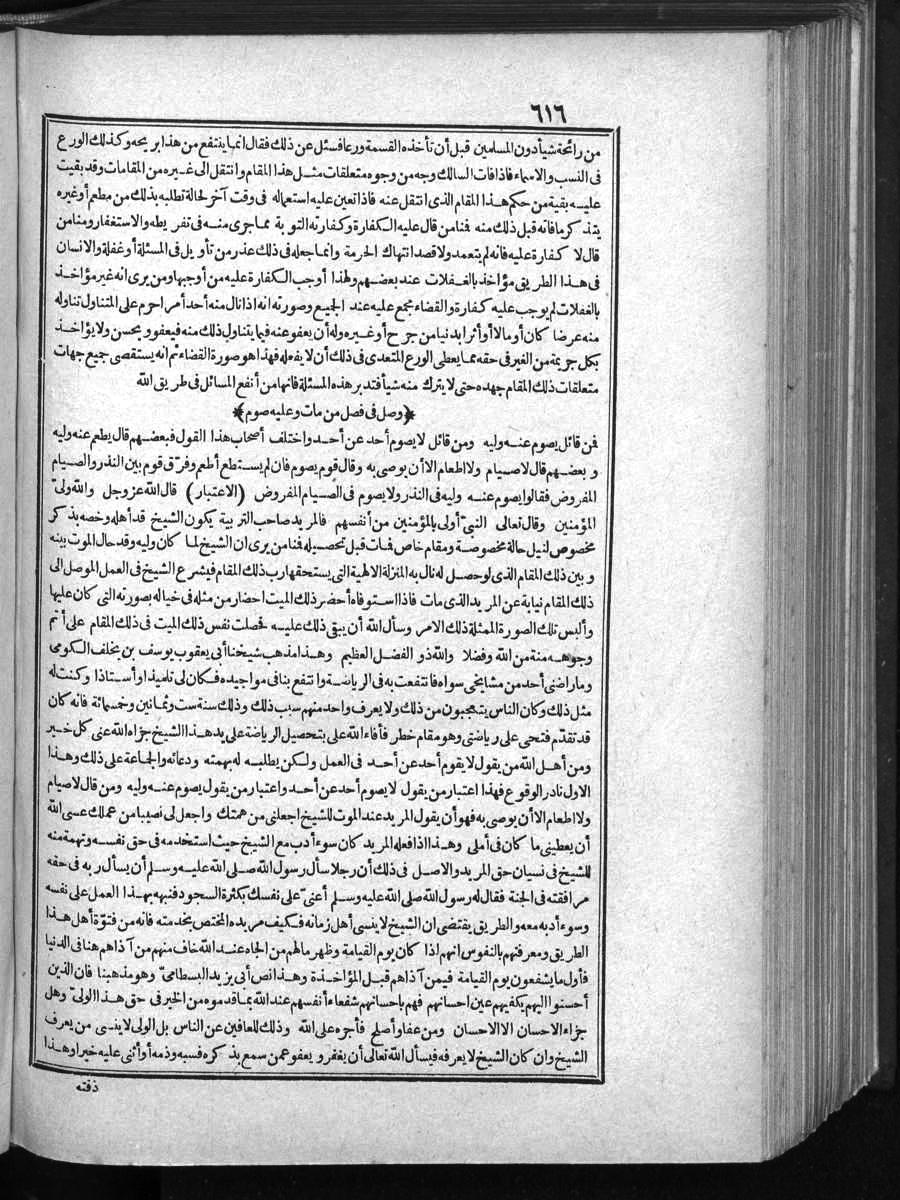 ٦١٦
من رائحة شيأ دون المسلمين قبل أن تأخذه القسمة ورعا فسئل عن ذلك فقال انما ينتفع من هذا بريحه وكذلك الورع
فى النسب والاسماء فاذا فات السالك وجه من وجوه متعلقات مثل هذا المقام وانتقل الى غيره من المقامات وقد بقيت
عليه بقية من حكم هذا المقام الذى انتقل عنه فاذا تعين عليه استعماله فى وقت آخر لحالة تطلبه بذلك من مطعم أو غيره
يتذكر ما فاته قبل ذلك منه فمنا من قال عليه الكفارة وكفارته التوبة مما جرى منه فى تفريطه والاستغفار ومنا من
قال لا كفارة عليه فانه لم يتعمد ولا قصد انتهاك الحرمة وانما جعله فى ذلك عذر من تأويل فى المسئلة أو غفلة والانسان
فى هذا الطريق مؤاخذ بالغفلات عند بعضهم ولهذا أوجب الكفارة عليه من أوجبها ومن يرى انه غير مؤاخذ
بالغفلات لم يوجب عليه كفارة والقضاء مجمع عليه عند الجميع وصورته انه اذا نال منه أحد أمرا حرم على المتناول تناوله
منه عرضا كان أو مالا أو أثرا بدنيا من جرح أو غيره وله أن يعفو عنه فيما يتناول ذلك منه فيعفو ويحسن ولا يؤاخذ
بكل جريمة من الغير فى حقه مما يعطى الورع المتعدى فى ذلك أن لا يفعله فهذا هو صورة القضاء ثم انه يستقصى جميع جهات
متعلقات ذلك المقام جهده حتى لا يترك منه شيأ فتدبر هذه المسئلة فانها من أنفع المسائل فى طريق الله
﴿وصل فى فصل من مات وعليه صوم﴾
فمن قائل يصوم عنه وليه ومن قائل لا يصوم أحد عن أحد واختلف أصحاب هذا القول فبعضهم قال يطعم عنه وليه
وبعضهم قال لا صيام ولا اطعام الا أن يوصى به وقال قوم يصوم فان لم يستطع أطعم وفرّق قوم بين النذر والصيام
المفروض فقالوا يصوم عنه وليه فى النذر ولا يصوم فى الصيام المفروض (الاعتبار) قال الله عز وجل والله ولىّ
المؤمنين وقال تعالى النبىّ أولى بالمؤمنين من أنفسهم فالمريد صاحب التربية يكون الشيخ قد أهله وخصه بذكر
مخصوص لنيل حالة مخصوصة ومقام خاص فمات قبل تحصيله فمنا من يرى ان الشيخ لما كان وليه وقد حال الموت بينه
وبين ذلك المقام الذى لو حصل له نال به المنزلة الالهية التى يستحقها رب ذلك المقام فيشرع الشيخ فى العمل الموصل الى
ذلك المقام نيابة عن المريد الذى مات فاذا استوفاه أحضر ذلك الميت احضار من مثله فى خياله بصورته التى كان عليها
وألبس تلك الصورة الممثلة ذلك الامر وسأل الله أن يبقى ذلك عليه فحصلت نفس ذلك الميت فى ذلك المقام على أتم
وجوهه منة من الله وفضلا والله ذو الفضل العظيم وهذا مذهب شيخنا أبى يعقوب يوسف بن يخلف الكومى
وما راضنى أحد من مشايخى سواه فانتفعت به فى الرياضة وانتفع بنا فى مواجيده فكان لى تلميذا وأستاذا وكنت له
مثل ذلك وكان الناس يتعجبون من ذلك ولا يعرف واحد منهم سبب ذلك وذلك سنة ست وثمانين وخمسمائة فانه كان
قد تقدّم فتحى على رياضتى وهو مقام خطر فأفاء الله على بتحصيل الرياضة على يد هذا الشيخ جزاه الله عنى كل خير
ومن أهل الله من يقول لا يقوم أحد عن أحد فى العمل ولكن يطلبه له بهمته ودعائه والجماعة على ذلك وهذا
الاول نادر الوقوع فهذا اعتبار من يقول لا يصوم أحد عن أحد واعتبار من يقول يصوم عنه وليه ومن قال لا صيام
ولا اطعام الا أن يوصى به فهو أن يقول المريد عند الموت للشيخ اجعلنى من همتك واجعل لى نصيبا من عملك عسى الله
أن يعطينى ما كان فى أملى وهذا اذا فعله المريد كان سوء أدب مع الشيخ حيث استخدمه فى حق نفسه وتهمة منه
للشيخ فى نسيان حق المريد والاصل فى ذلك أن رجلا سأل رسول الله صلى الله عليه وسلم أن يسأل ربه فى حقه
مرافقته فى الجنة فقال له رسول الله صلى الله عليه وسلم أعنىّ على نفسك بكثرة السجود فنبهه بهذا العمل على نفسه
وسوء أدبه معه والطريق يقتضى ان الشيخ لا ينسى أهل زمانه فكيف مريده المختص بخدمته فانه من فتوّة أهل هذا
الطريق ومعرفتهم بالنفوس انهم اذا كان يوم القيامة وظهر ما لهم من الجاه عند الله خاف منهم من آذاهم هنا فى الدنيا
فأول ما يشفعون يوم القيامة فيمن آذاهم قبل المؤاخذة وهذا نص أبى يزيد البسطامىّ وهو مذهبنا فان الذين
أحسنوا اليهم يكفيهم عين احسانهم فهم باحسانهم شفعاء أنفسهم عند الله بما قدموه من الخير فى حق هذا الولىّ وهل
جزاء الاحسان الا الاحسان ومن عفا وأصلح فأجره على الله وذلك للعافين عن الناس بل الولى لا ينسى من يعرف
الشيخ وان كان الشيخ لا يعرفه فيسأل الله تعالى أن يغفر ويعفو عمن سمع بذكره فسبه وذمه أو أثنى عليه خيرا وهذا
ذقته